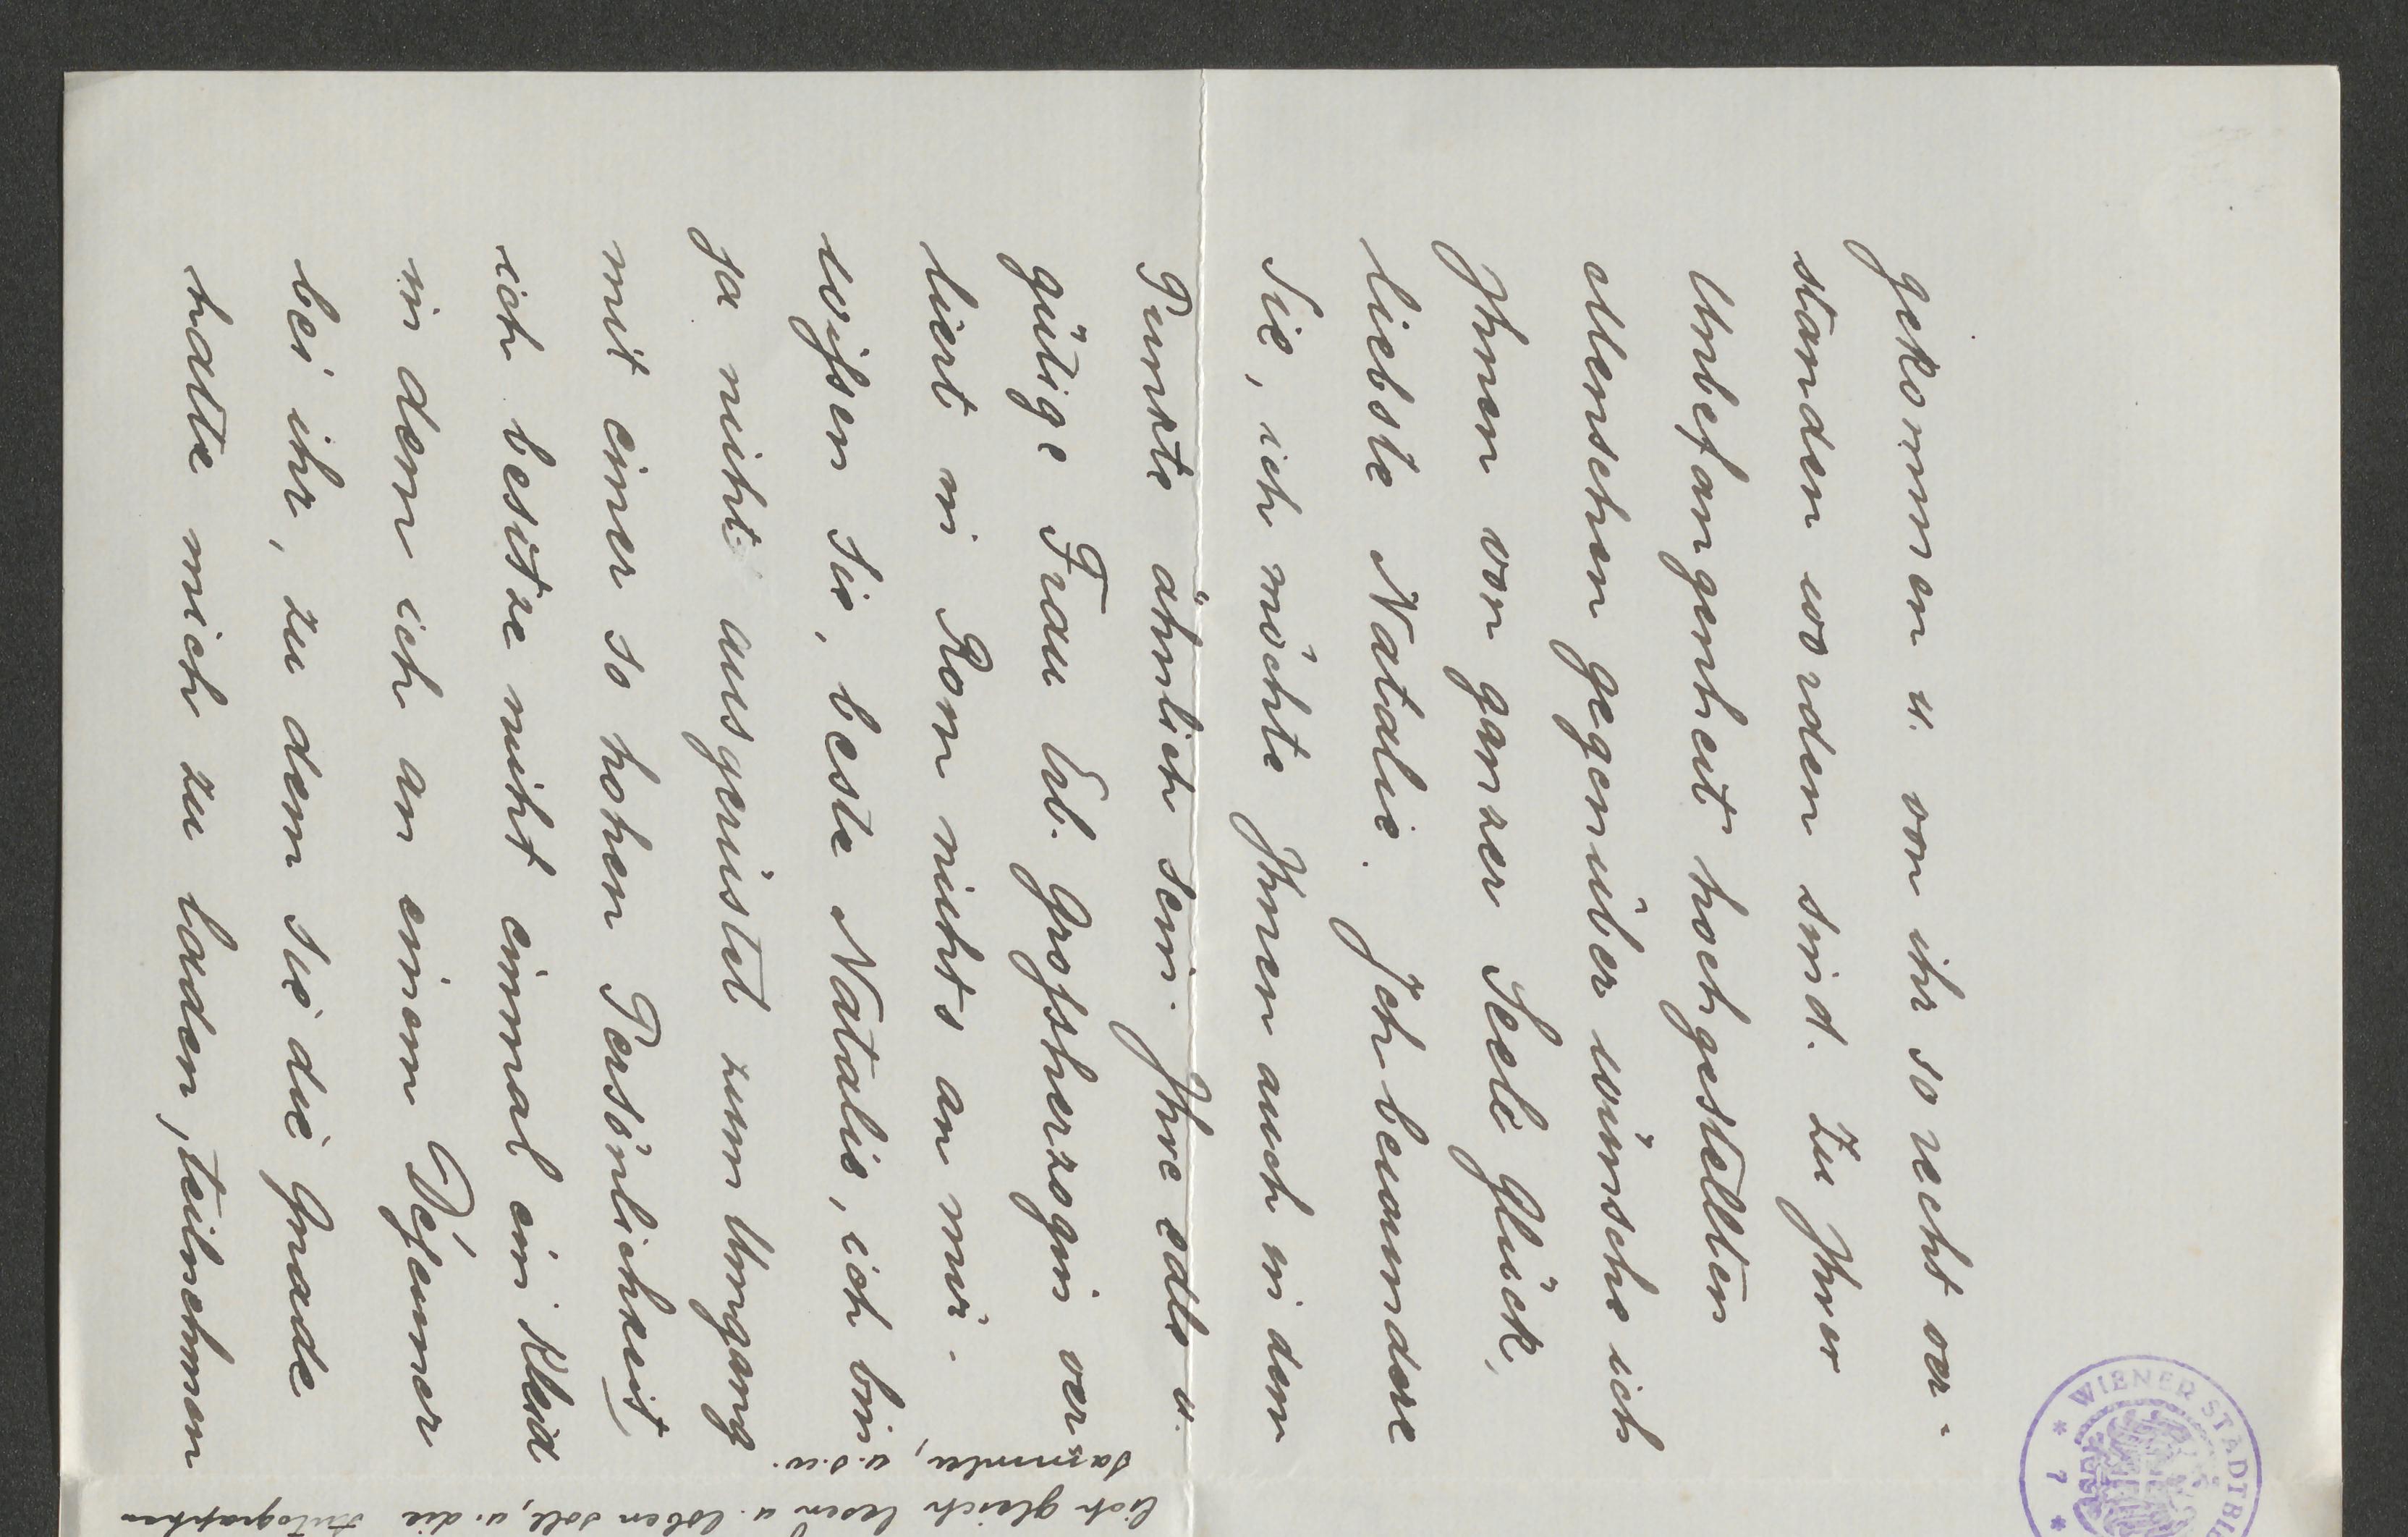 gekommen u. von ihr so recht ver-
standen worden sind. Zu Ihrer
Unbefangenheit hochgestellten
Menschen gegenüber wünsche ich
Ihnen von ganzer Seele Glück,
liebste Natalie. Ich beneundere
Sie, ich möchte Ihnen auch in dem
Punkte ähnlich sein. Ihre edle u.
gütige Frau Erb. Großherzogin ver
liert in Rom nichts an mir.
Wißsen Sie, beste Natalie, ich bin
ja nicht ausgerüstet zum Umgang
mit einer so hohen Persönlichkeit,
ich besitze nicht einmal ein Kleid
in dem ich an einem Déjeuner
bei ihr, zu dem sie die Gnade
hätte mich zu laden, teilnehmen
lich gleich lesen u. loben soll, u. die Autographen
sammler, u.s.w.
* WIENER STADTBI
* 7 *